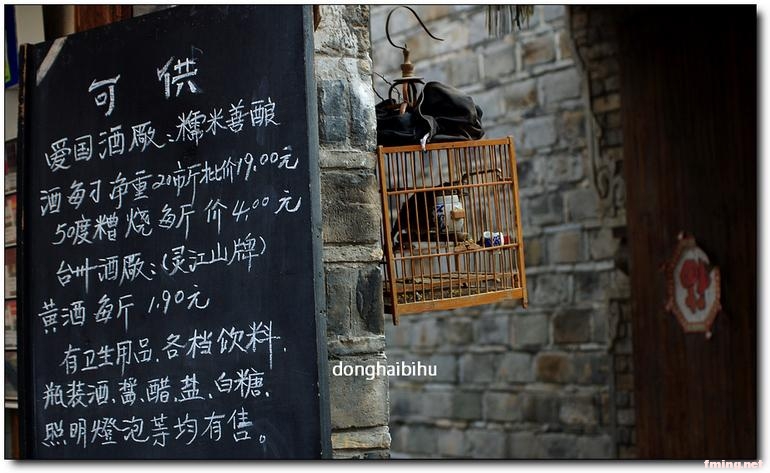 可供
爱国酒厰:糯米善酿
酒每刁净重20市斤批价19.00元
50度糟烧每斤价4.00元
台州酒厰:(灵江山牌)
黄酒每斤1.90元
有卫生用品、各档饮料、
瓶装酒、酱、醋、盐、白糖、
照明燈泡等均有售。
donghaibihu
fming.net